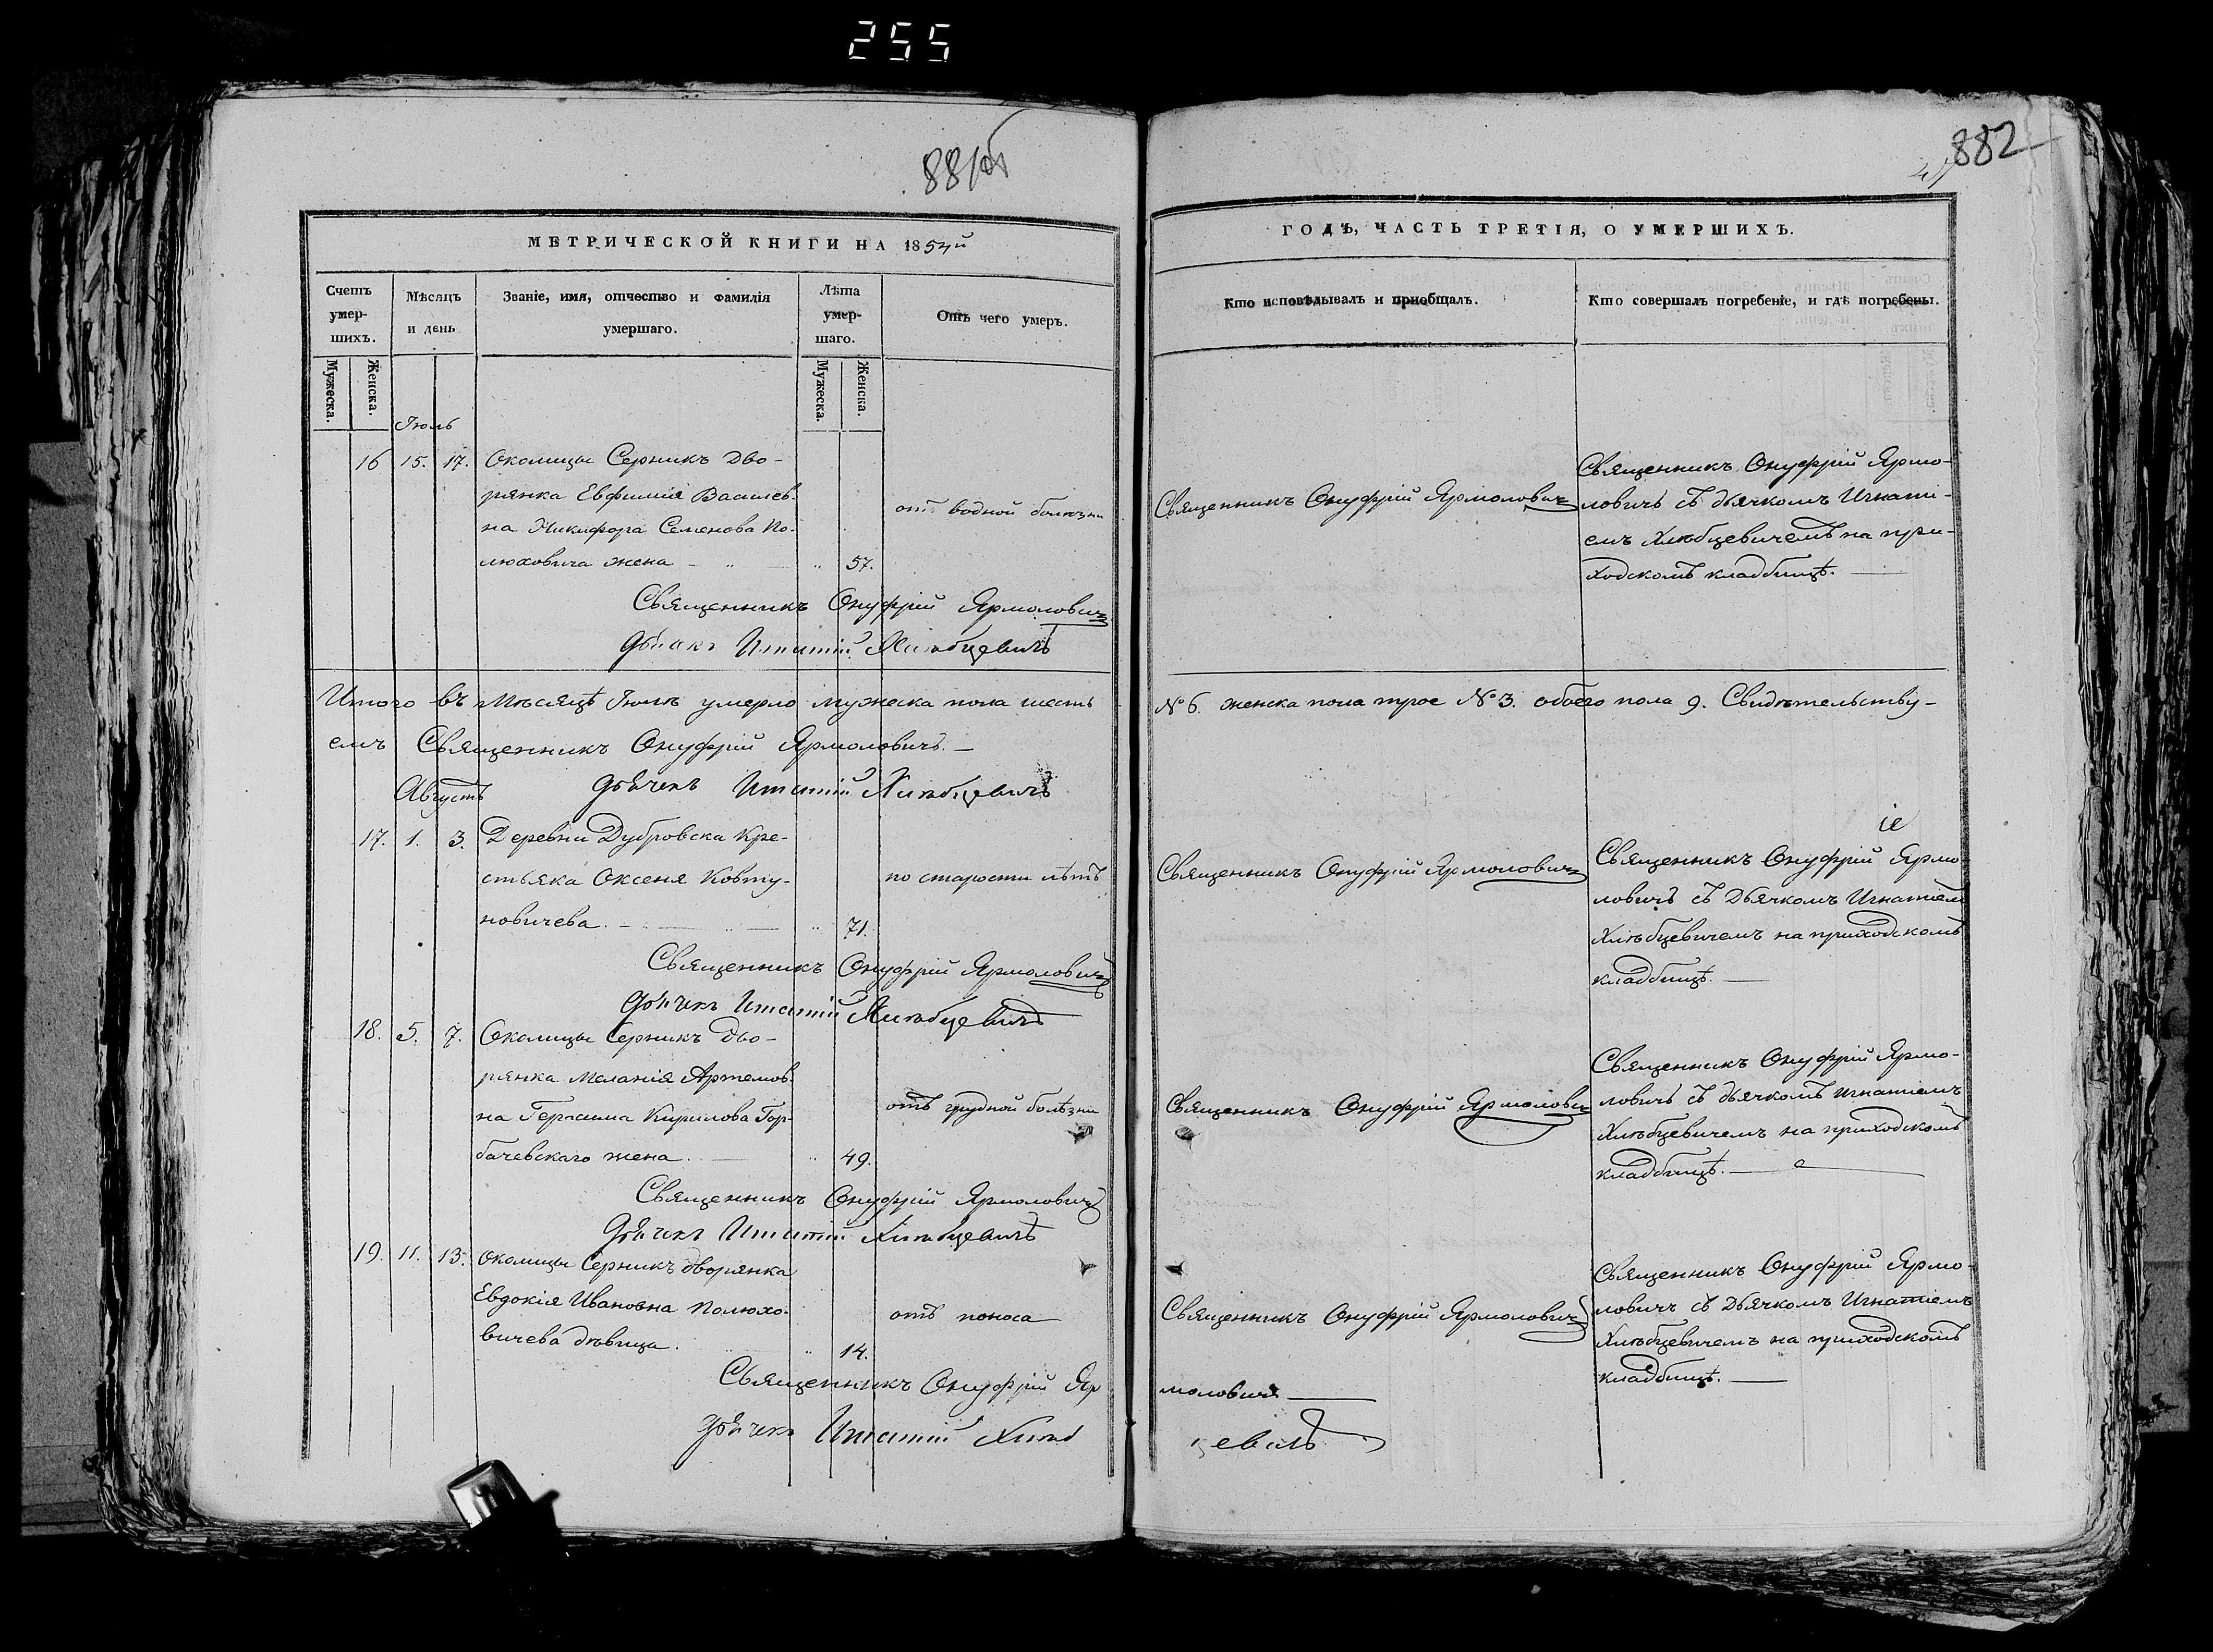 255
881об
882
МЕТРИЧЕСКОЙ КНИГИ НА 1854й
ГОДЪ, ЧАСТЬ ТРЕТІЯ, О УМЕРШИХЪ.
Счетъ умер-шихъ.
Мѣсяцъ и день
Званіе, имя, отчество и фамилія умершаго.
Лѣта умер-шаго.
Отъ чего умеръ.
Кто исповѣдывалъ и приобщалъ.
Кто совершалъ погребеніе, и гдѣ погребены.
Мужеска.
Женска.
Мужеска.
Женска.
Іюль
16 15. 17. Околицы Серникъ Дво-
рянка Евфимія Василев-
на Никифора Семенова По-
люховича жена 57.
отъ водной болѣзни
Священникъ Онуфрій Ярмоловичъ
Священникъ Онуфрій Ярмо-
ловичъ съ дьячкомъ Игнаті-
емъ Хлѣбцевичемъ на при-
ходскомъ кладбищѣ.
Священникъ Онуфрій Ярмоловичъ
Дьячекъ Игнатій Хлѣбцевичъ
Итого въ Мѣсяцѣ Іюлѣ умерло мужеска пола шесть
№ 6. женска пола трое № 3. обоего пола 9. Свидѣтельству-
емъ Священникъ Онуфрій Ярмоловичъ.
Дьячекъ Игнатій Хлѣбцевичъ
Августъ
17. 1. 3. Деревни Дубровска Кре-
стьяка Оксеня Ковту-
новичева. 71.
по старости лѣтъ
Священникъ Онуфрій Ярмоловичъ
іе
Священникъ Онуфрій Ярмо-
ловичъ съ Дьячкомъ Игнатіемъ
Хлѣбцевичемъ на приходскомъ
кладбищѣ.
Священникъ Онуфрій Ярмоловичъ
Дьячекъ Игнатій Хлѣбцевичъ
18. 5. 7. Околицы Серникъ Дво-
рянка Меланія Артемов-
на Герасима Кирилова Гор-
бачевскаго жена. 49.
отъ грудной болѣзни
Священникъ Онуфрій Ярмолович
Священникъ Онуфрій Ярмо-
ловичъ съ дьячкомъ Игнатіемъ
Хлѣбцевичемъ на приходскомъ
кладбищѣ.
Священникъ Онуфрій Ярмоловичъ
Дьячекъ Игнатій Хлѣбцевичъ
19. 11. 13. Околицы Серникъ дворянка
Евдокія Ивановна Полюхо-
вичева дѣвица. 14.
отъ поноса
Священникъ Онуфрій Ярмоловичъ
Священникъ Онуфрій Ярмо-
ловичъ съ Дьячкомъ Игнатіемъ
Хлѣбцевичемъ на приходскомъ
кладбищѣ.
Священникъ Онуфрій Яр
моловичъ
Дьячекъ Игнатій Хлѣб
цевичъ